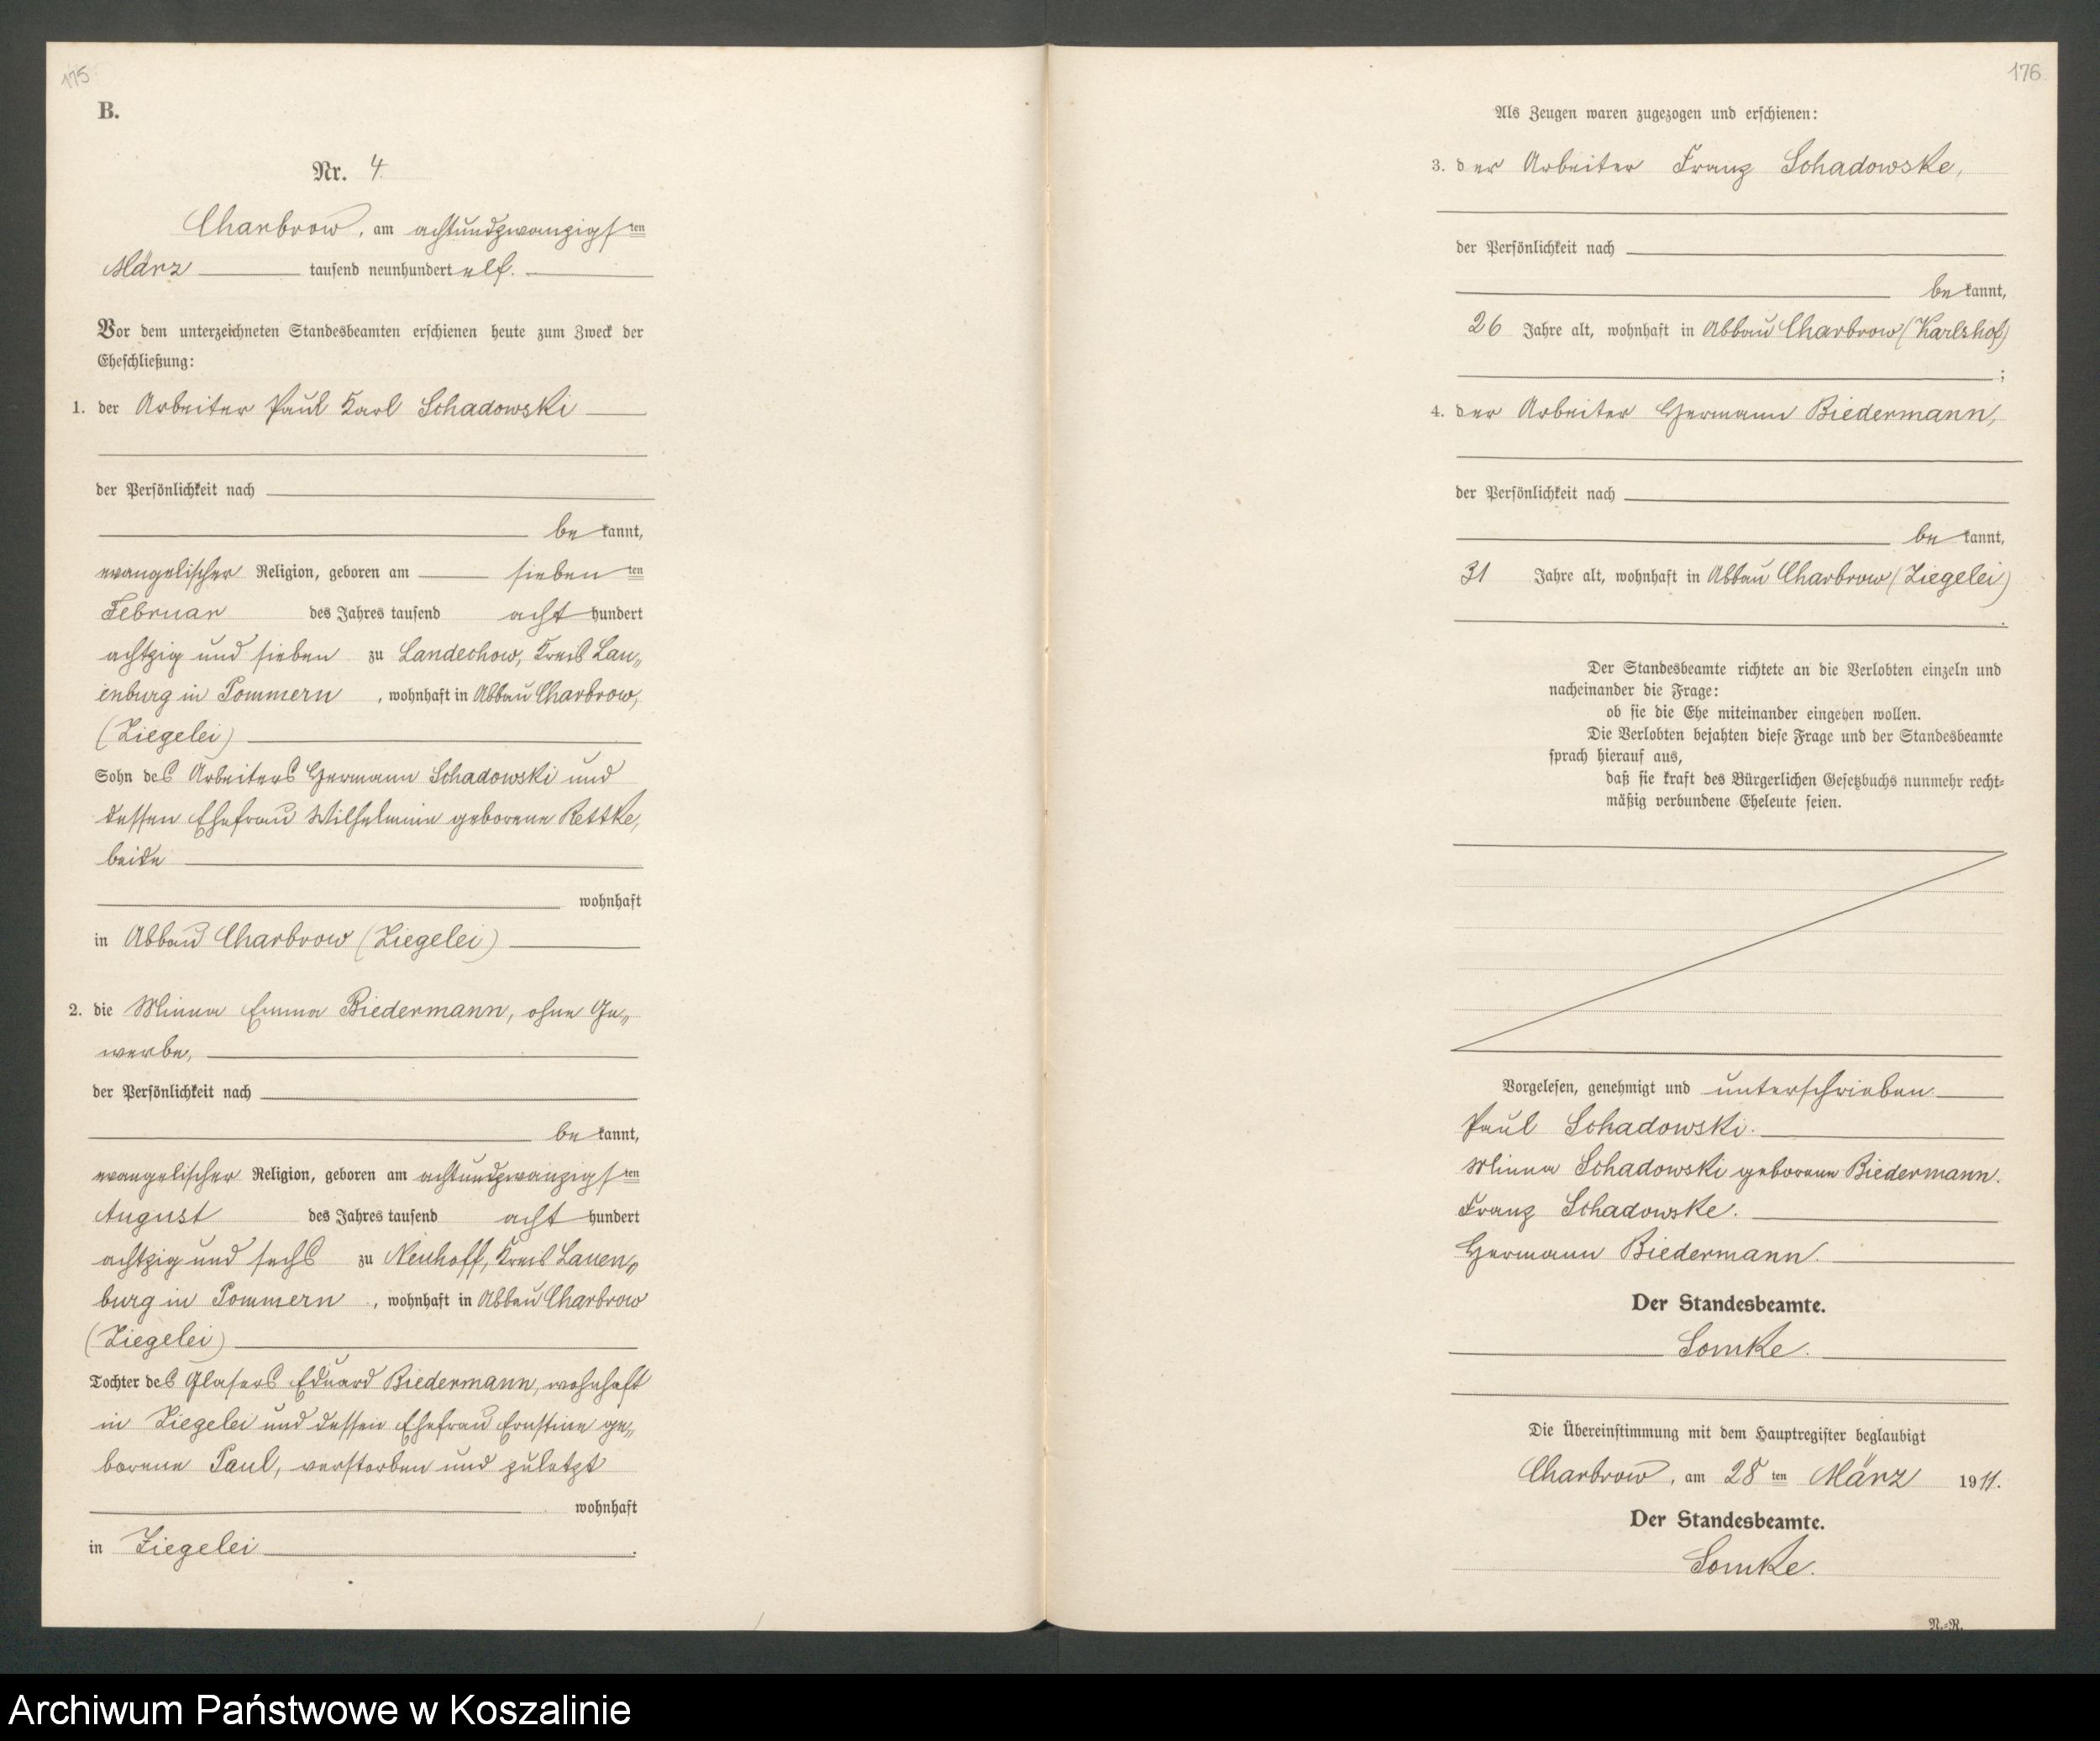 175
B.
Nr. 4.
Charbrow, am achtundzwanzigsten
März tausend neunhundert elf.
Vor dem unterzeichneten Standesbeamten erschienen heute zum Zweck der
Eheschließung:
1. der Arbeiter Paul Karl Schadowski
der Persönlichkeit nach
bekannt,
evangelischer Religion, geboren am siebenten
Februar des Jahres tausend achthundert
achtzig und sieben zu Landechow, Kreis Lau„
enburg in Pommern, wohnhaft in Abbau Charbrow,
(Ziegelei)
Sohn des Arbeiters Hermann Schadowski und
dessen Ehefrau Wilhelmine geborene Rettke,
beide
wohnhaft
in Abbau Charbrow (Ziegelei)
2. die Minna Emma Biedermann, ohne Ge„
werbe,
der Persönlichkeit nach
bekannt,
evangelischer Religion, geboren am achtundzwanzigsten
August des Jahres tausend achthundert
achtzig und sechs zu Neuhoff, Kreis Lauen„
burg in Pommern, wohnhaft in Abbau Charbrow
(Ziegelei)
Tochter des Glasers Eduard Biedermann, wohnhaft
in Ziegelei und dessen Ehefrau Ernstine ge„
borene Paul, verstorben und zuletzt
wohnhaft
in Ziegelei.
176
Als Zeugen waren zugezogen und erschienen:
3. der Arbeiter Franz Schadowske,
der Persönlichkeit nach
bekannt,
26 Jahre alt, wohnhaft in Abbau Charbrow (Karlshof)
;
4. der Arbeiter Hermann Biedermann,
der Persönlichkeit nach
bekannt,
31 Jahre alt, wohnhaft in Abbau Charbrow (Ziegelei)
.
Der Standesbeamte richtete an die Verlobten einzeln und
nacheinander die Frage:
ob sie die Ehe miteinander eingehen wollen.
Die Verlobten bejahten diese Frage und der Standesbeamte
sprach hierauf aus,
daß sie kraft des Bürgerlichen Gesetzbuchs nunmehr recht-
mäßig verbundene Eheleute seien.
Vorgelesen, genehmigt und unterschrieben.
Paul Schadowski.
Minna Schadowski geborene Biedermann.
Franz Schadowske.
Hermann Biedermann.
Der Standesbeamte.
Somke.
Die Übereinstimmung mit dem Hauptregister beglaubigt
Charbrow, am 28ten März 1911.
Der Standesbeamte.
Somke.
N.-R.
Archiwum Państwowe w Koszalinie